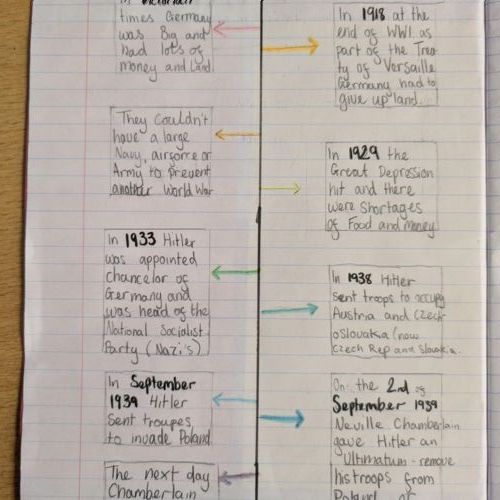 In Victorian
times Germany
was Big and
had lots of
money and Land
In 1918 at the
end of WW1 as
part of the Trea
ty of Versaille
Germany had to
give up land.
They couldn't
have a large
Navy, airsorce or
Army to prevent
another World War
In 1929 the
Great Depression
hit and there
were shortages
of Food and money
In 1933 Hitler
was appointed
chancelor of
Germany and
was head of the
National Socialist
Party (Nazi's)
In 1938 Hitler
sent troops to occupy
Austria and Czech
oslovakia (now
Czech Rep and Slovakia.
In September
1939 Hitler
sent troupes
to invade Poland
On the 2nd of
September 1939
Neville Chamberlain
gave Hitler an
Ultimatum - remove
his troops from
Poland or
The next day
Chamberlain